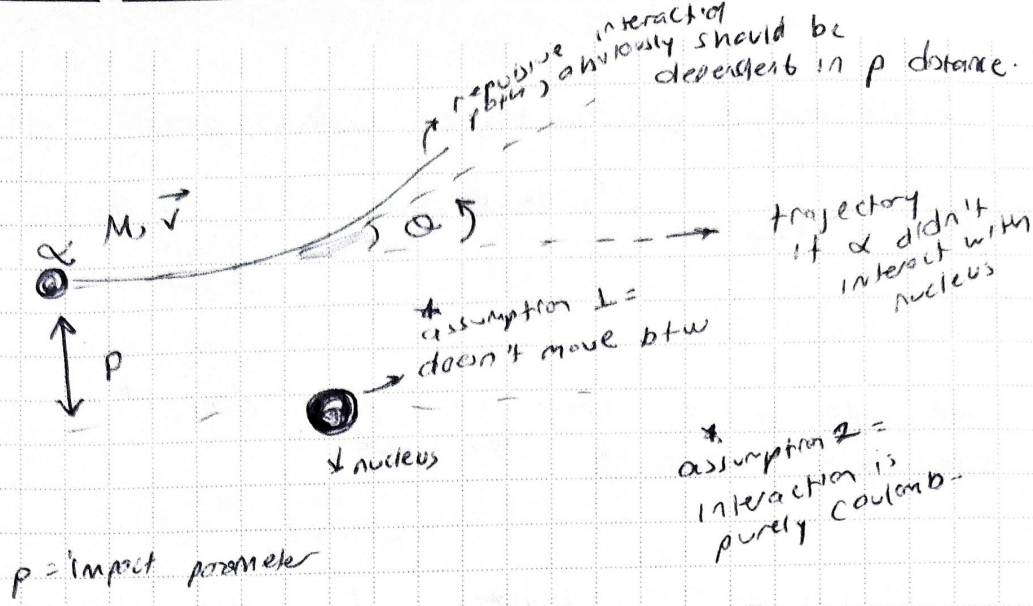 repulsive interaction
(btw) obviously should be
dependent in p distance.
α M, v
Θ
trajectory
if α didn't
interact with
nucleus
p
* assumption 1 =
doesn't move btw
nucleus
* assumption 2 =
interaction is
purely Coulomb.
p = impact parameter